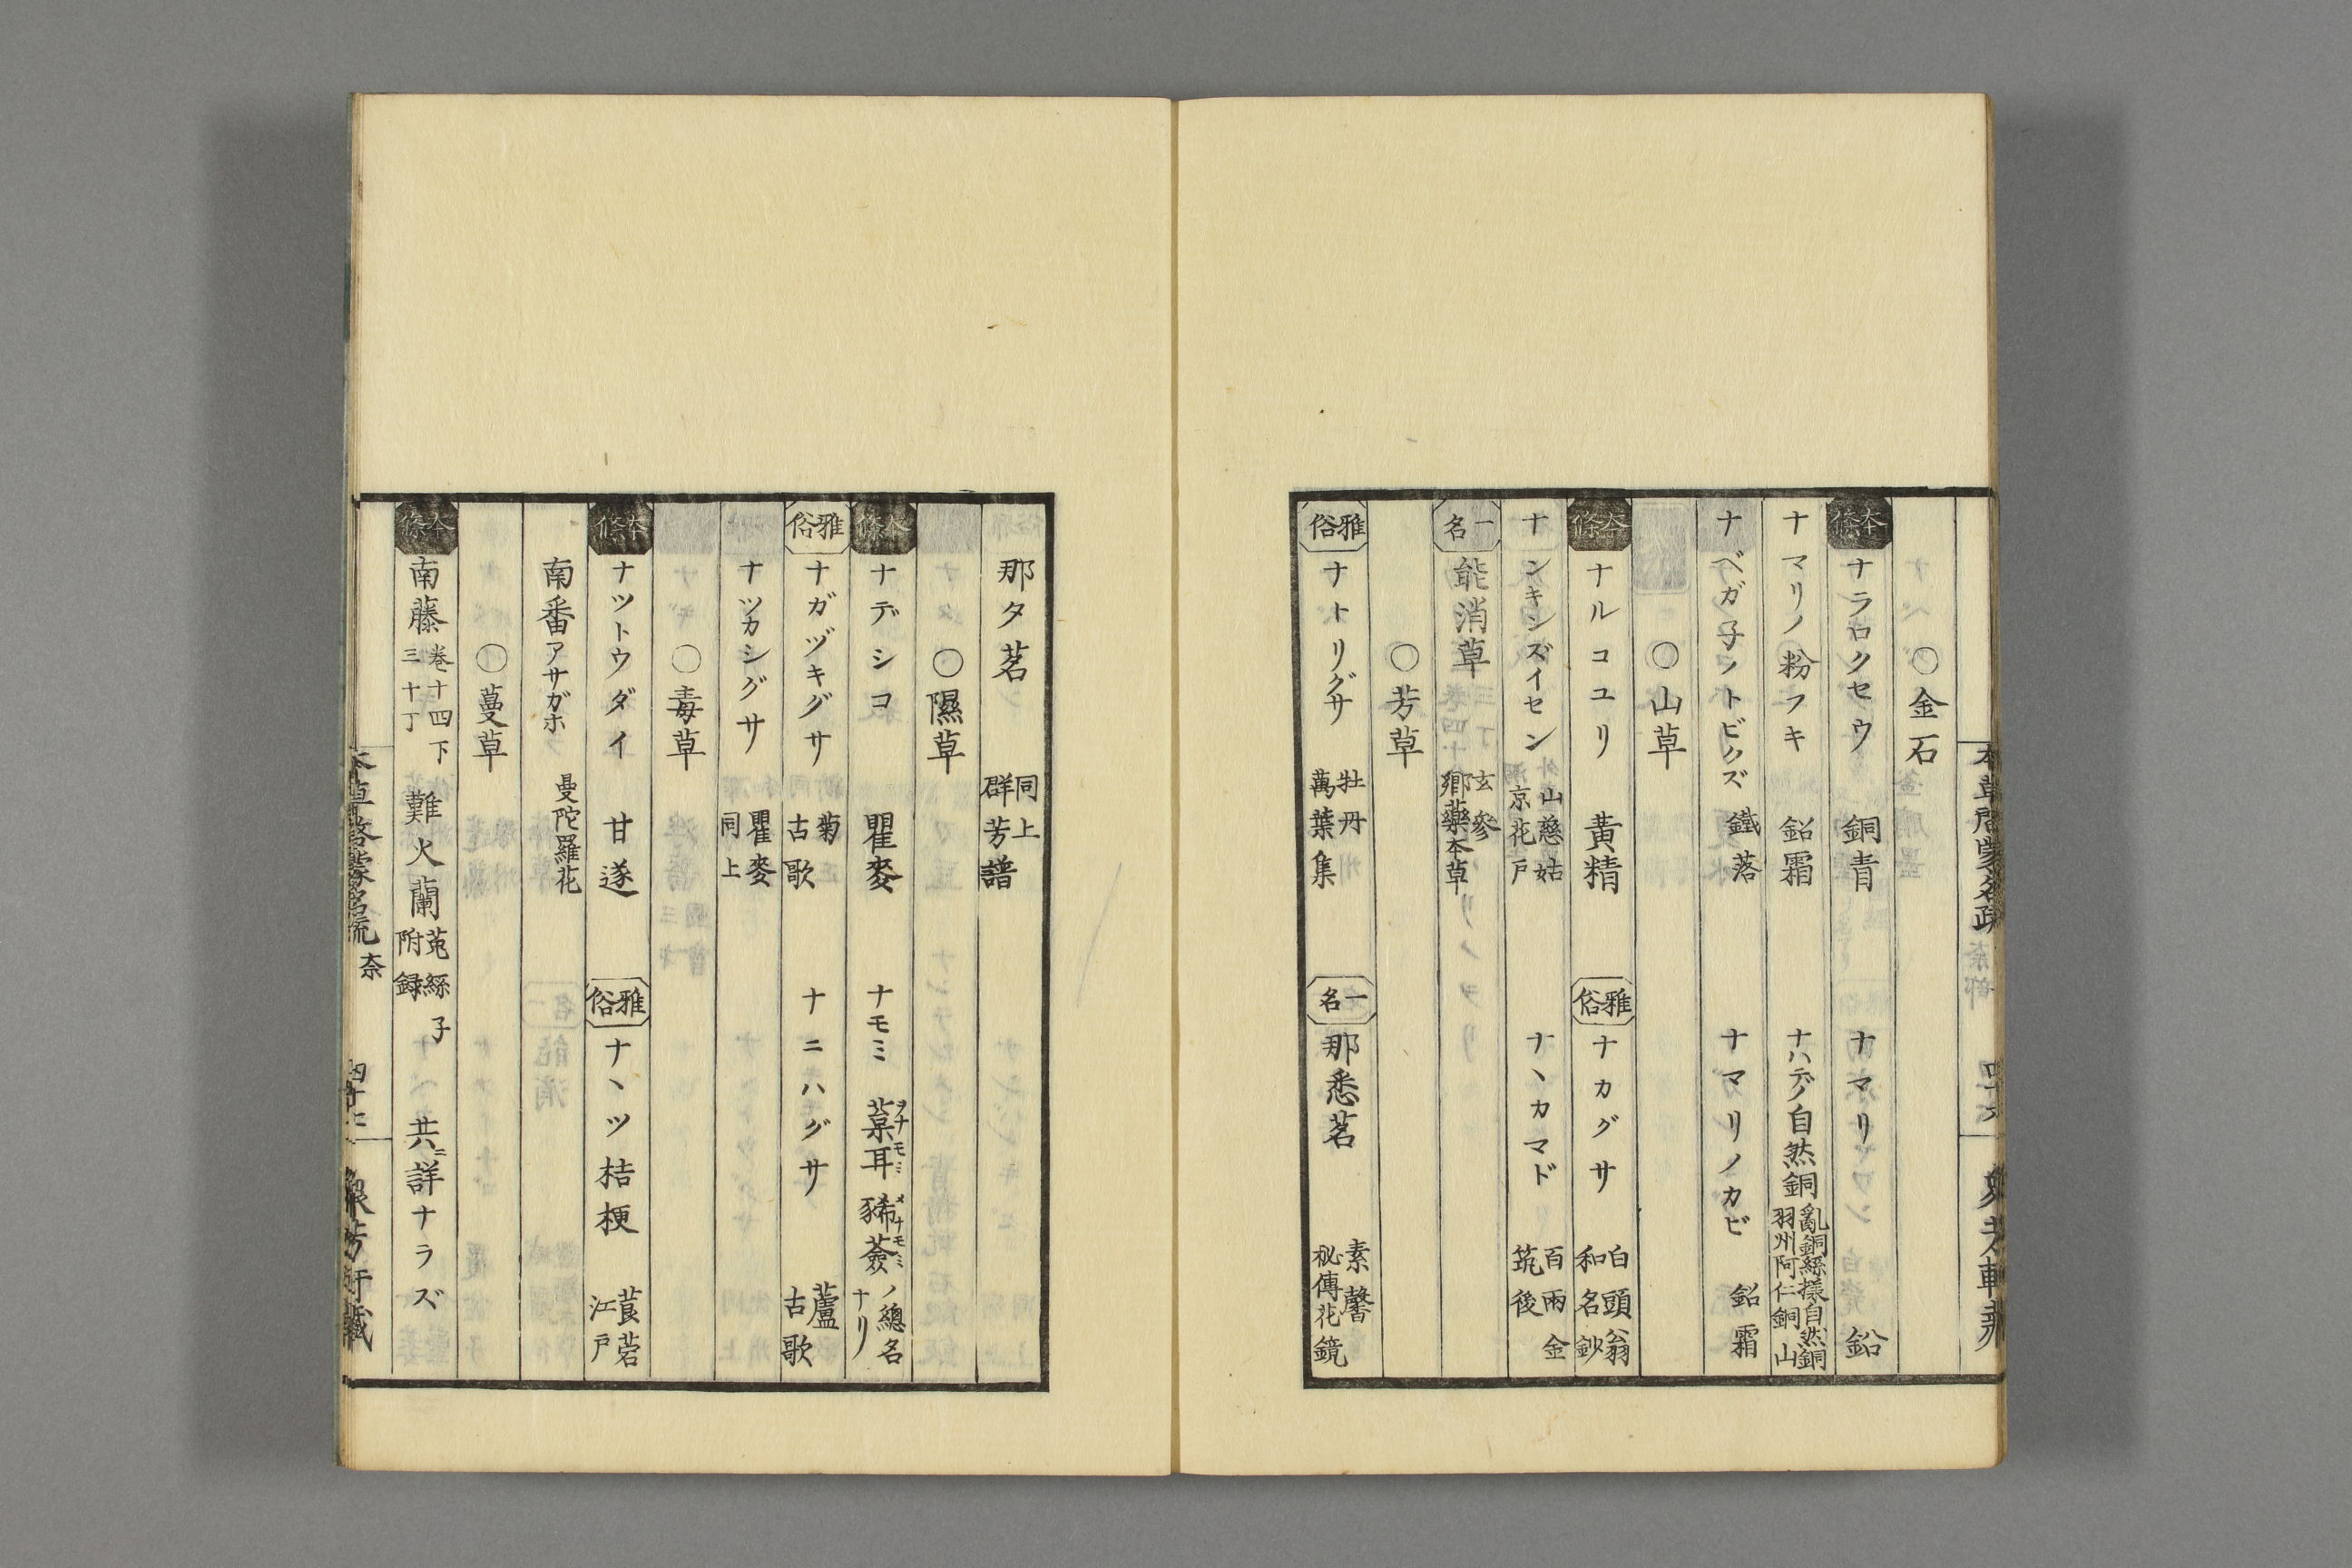 ○金石
本條 ナラロクセウ 銅青 ナマリ 鉛
ナマリノ粉フキ 鉛霜 ナハデノ自然銅 亂銅絲樣自然銅 羽州阿仁銅山
ナベガ子ノトビクズ 鐵落 ナマリノカビ 鉛霜
○山草
本條 ナルコユリ 黄精 雅俗 ナカグサ 白頭翁 和名鈔
ナンキンズイセン 山慈姑 京花戸 ナヽカマド 百兩金 筑後
一名 能消草 玄參 鄕藥本草
○芳草
雅俗 ナトリグサ 牡丹 萬葉集 一名 那悉茗 素馨 秘傳花鏡
那タ茗 同上 群芳譜
○隰草
本條 ナデシコ 瞿麥 ナモミ 葈耳 ヲナモミ 豨薟 メナモミ ノ總名ナリ
雅俗 ナガヅキグサ 菊 古歌 ナニハグサ 蘆 古歌
ナツカシグサ 瞿麥 同上
○毒草
本條 ナツトウダイ 甘遂 雅俗 ナヽツ桔梗 莨菪 江戸
南番アサガホ 曼陀羅花
○蔓草
本條 南藤 巻十四下 三十丁 難火蘭 菟絲子 附録 共ニ詳ナラズ
本草啓蒙名疏 奈 四十七 衆芳軒藏